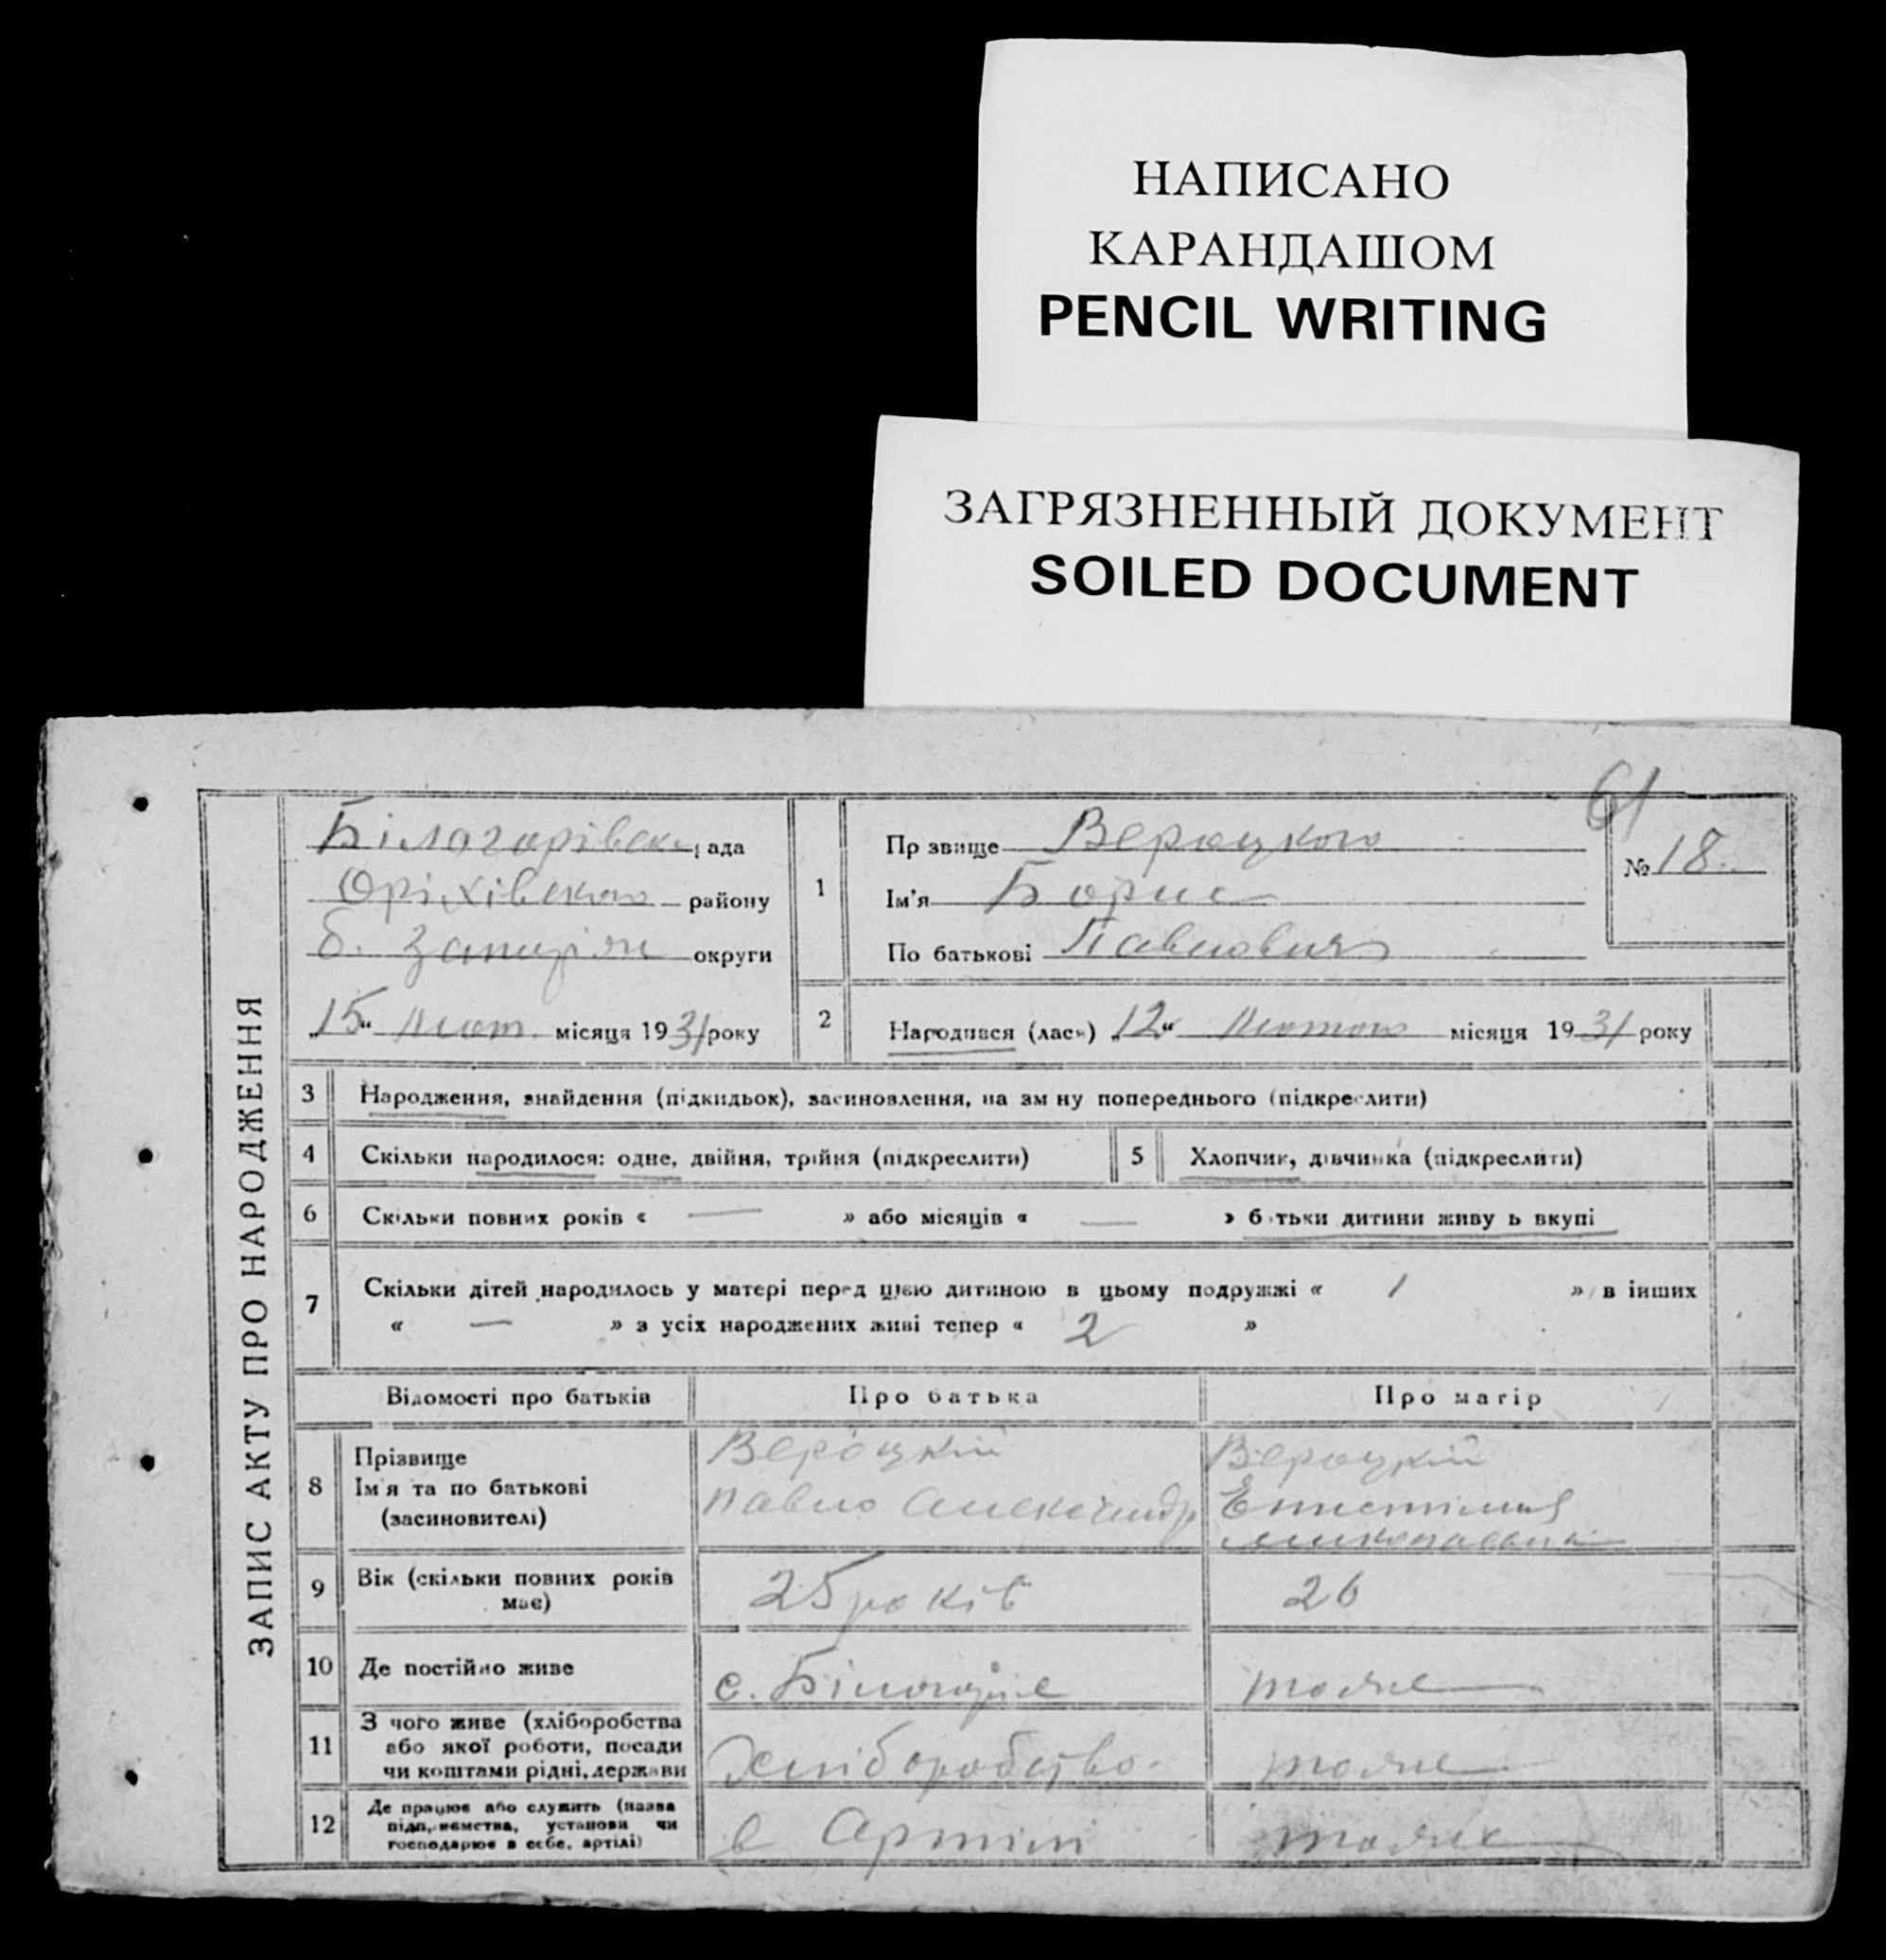 НАПИСАНО
КАРАНДАШОМ
PENCIL WRITING
ЗАГРЯЗНЕННЫЙ ДОКУМЕНТ
SOILED DOCUMENT
61
ЗАПИС АКТУ ПРО НАРОДЖЕННЯ
Білогорівськ рада
Оріхівського району
б. Запоріж округи
„15“ Лют. місяця 1931 року
1
Прзвище Вероцкого
Ім'я Борис
По батькові Павлович
№ 18
2 Народився (лась) „12“ Лютого місяця 1931 року
3 Народження, знайдення (підкидьок), засиновлення, на зм ну попереднього (підкреслити)
4 Скільки народилося: одне, двійня, трійня (підкреслити)
5 Хлопчик, дівчинка (підкреслити)
6 Скільки повних років « — » або місяців « — » б тьки дитини живу ь вкупі
7 Скільки дітей народилось у матері перед цією дитиною в цьому подружжі « 1 » в інших
« — » з усіх народжених живі тепер « 2 »
Відомості про батьків Про батька Про матір
8 Прізвище
Ім'я та по батькові
(засиновителі)
Вероцкій
Павло Александр
Вероцкій
9 Вік (скільки повних років
має)
25 років
26
10 Де постійно живе
с. Білогорʼє
тоже
11 З чого живе (хліборобства
або якої роботи, посади
чи коштами рідні, держави
Хліборобство.
тоже
12 Де працює або служить (назва
підприємства, установи чи
господарює в себе, артілі)
в Артілі
тоже